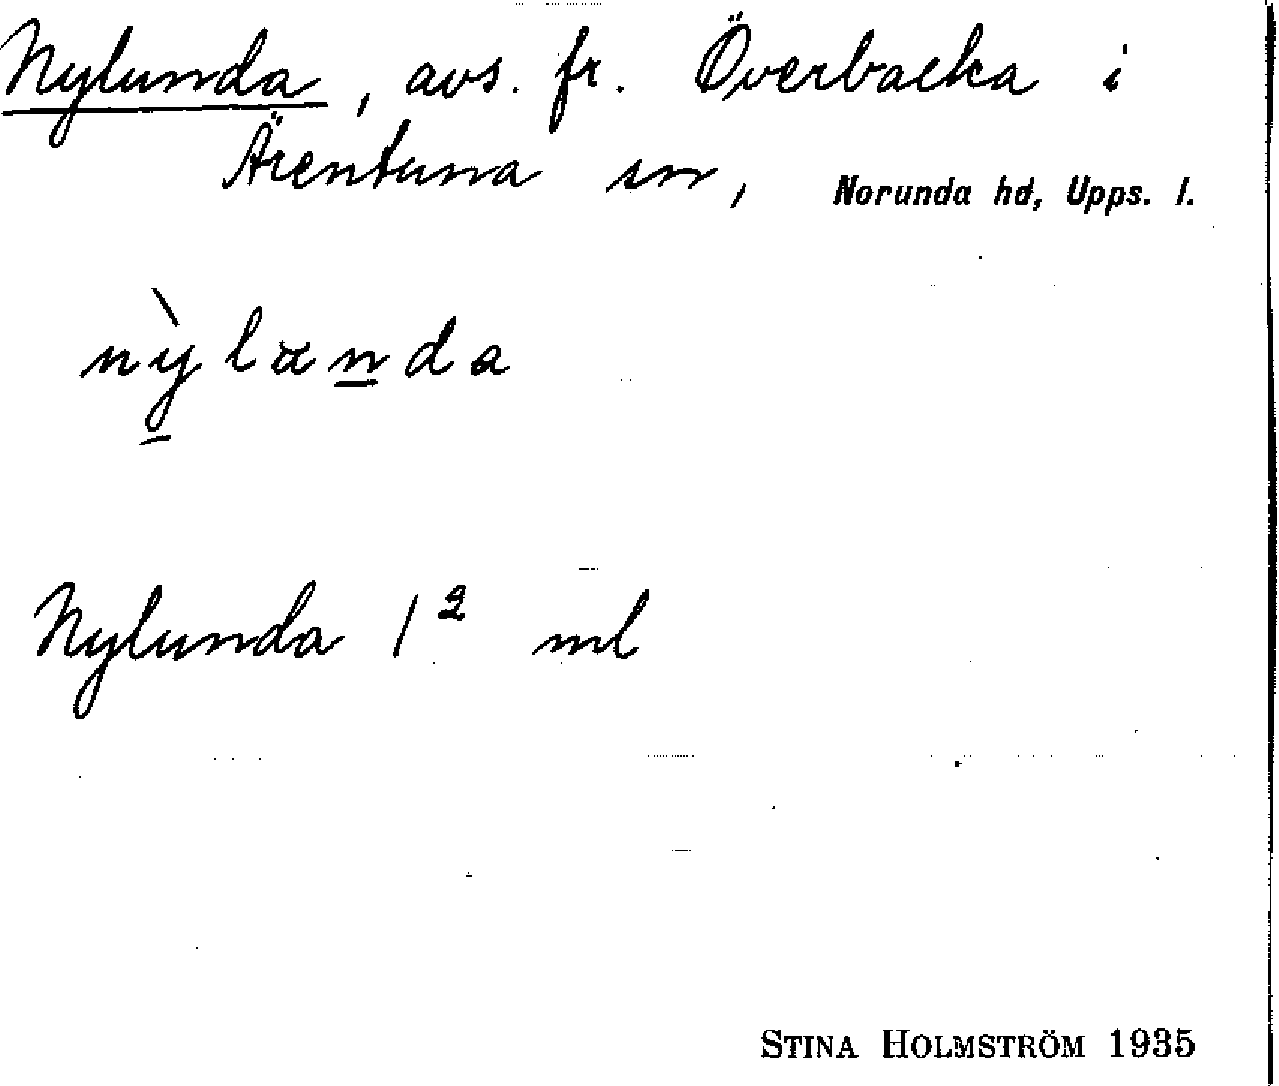 Nylunda, avs. fr. Överbacka i
Ärentuna sn, Norunda hd, Upps. l.
nỳlanda
Nylunda 1² ml
STINA HOLMSTRÖM 1935